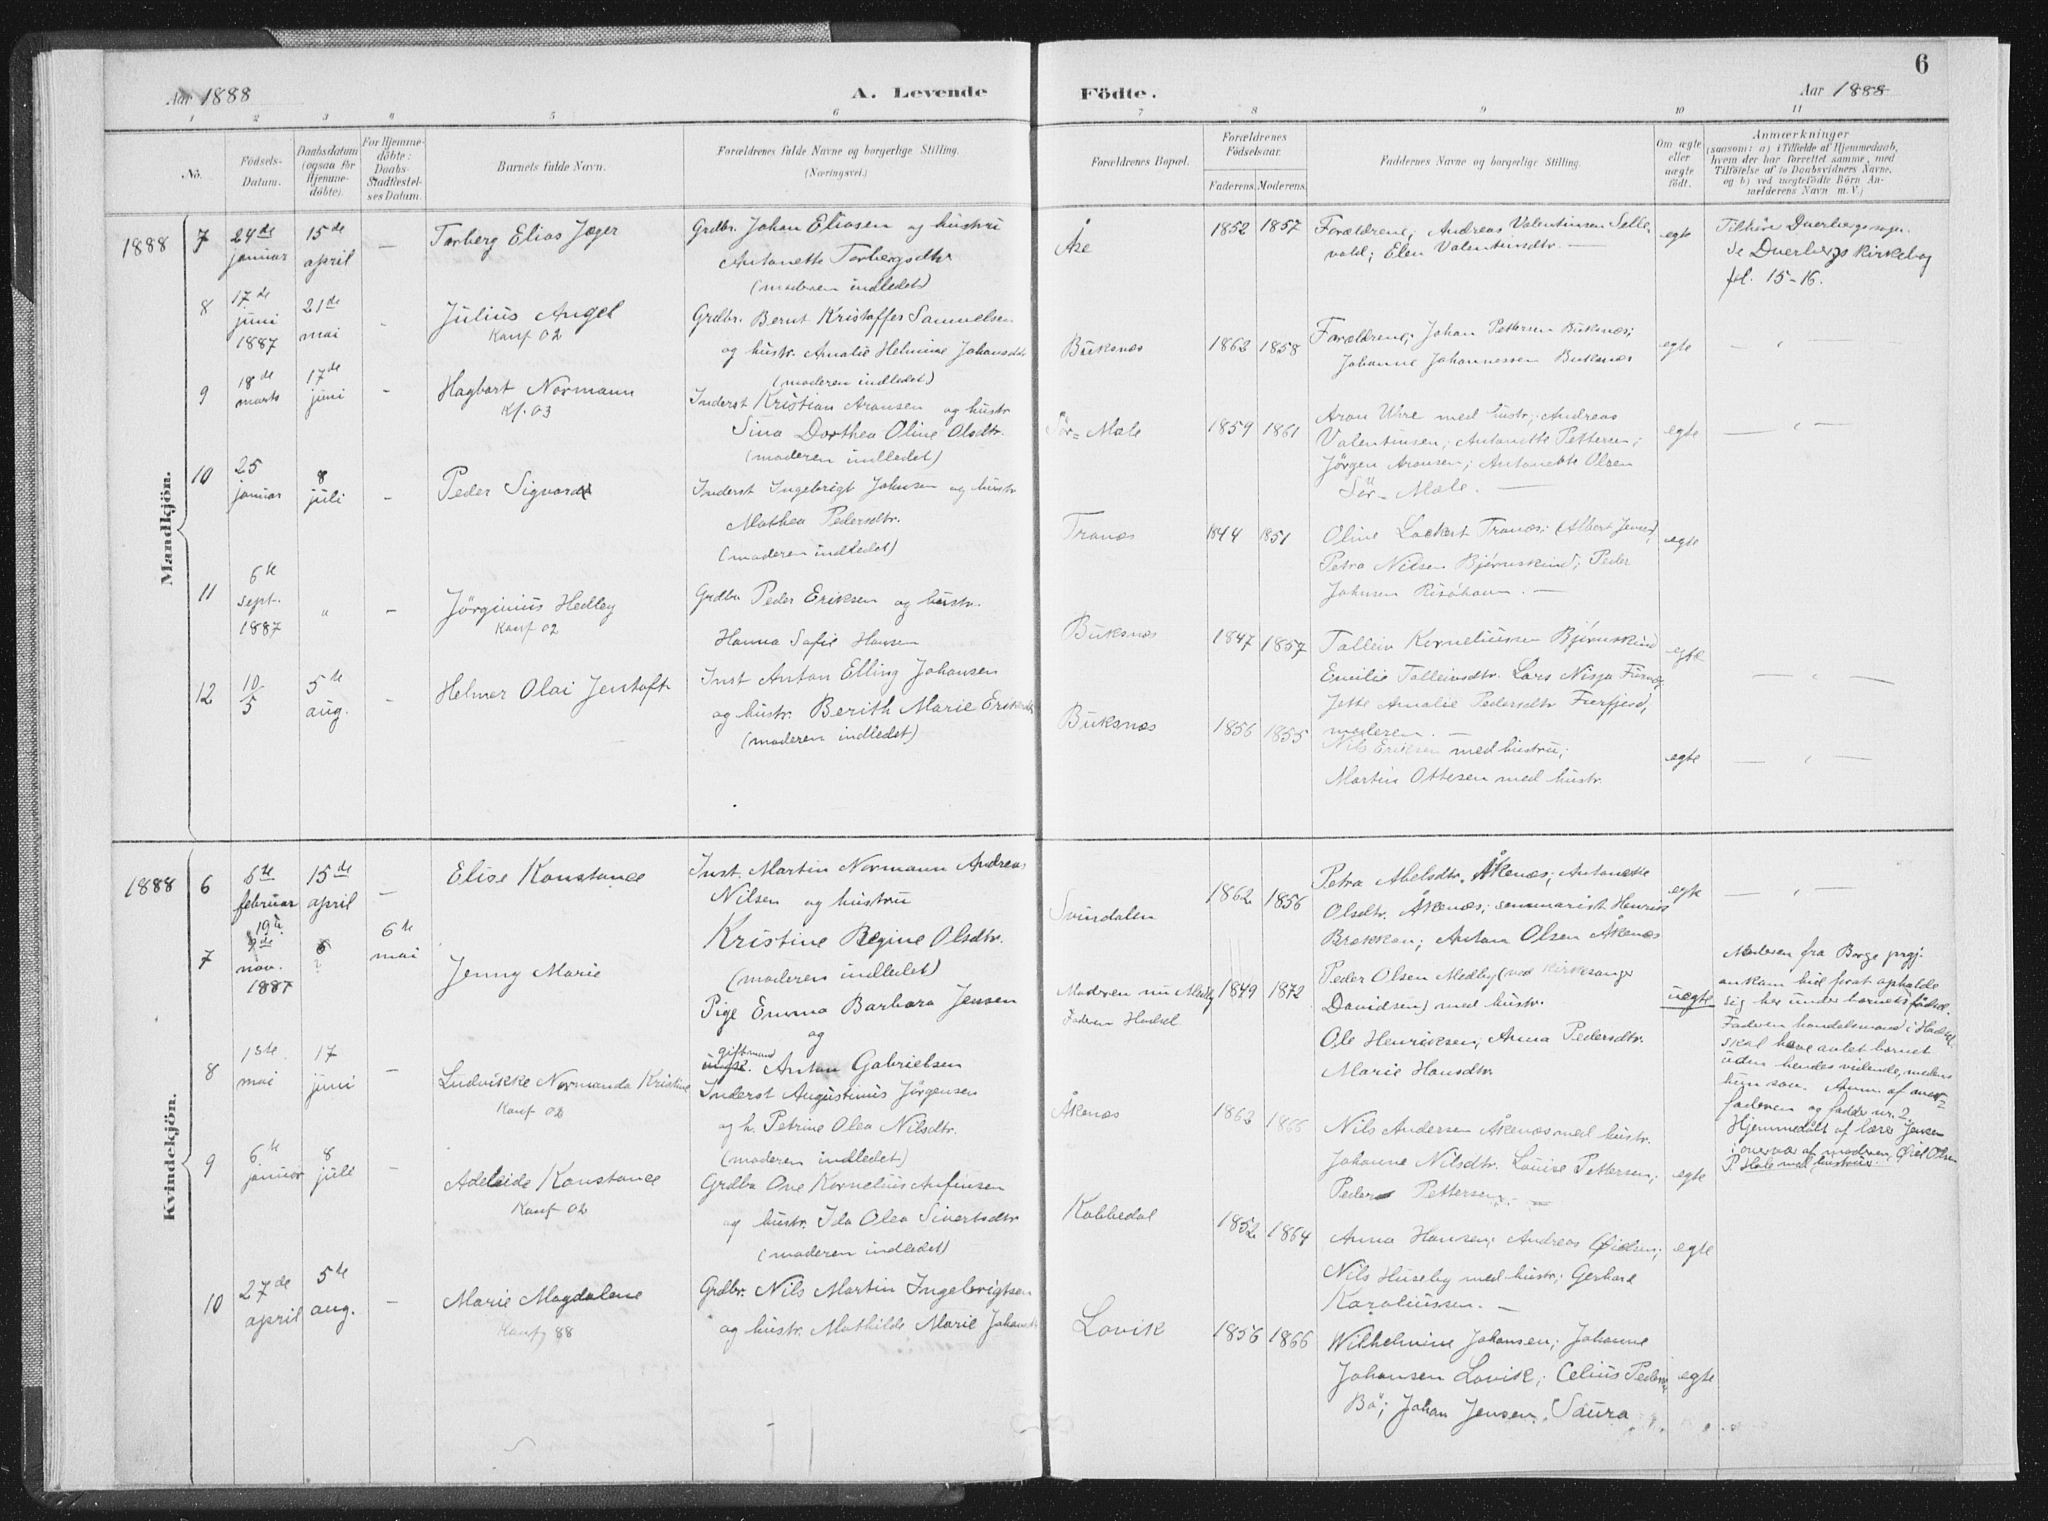 Aar 1888
A. Levende
Födte.
Aar 1888
6
1
2
3
4
5
6
7
8
9
10
11
No.
Födsels-
Datum.
Daabsdatum
(ogsaa for
Hjemme-
döbte).
For Hjemme-
döbte:
Daabs-
Stadfestel-
ses Datum.
Barnets fulde Navn.
Forældrenes fulde Navne og borgerlige Stilling.
(Næringsvei.)
Forældrenes Bopæl.
Forældrenes
Födselsaar.
Faderens.
Moderens.
Faddernes Navne og borgerlige Stilling.
Om ægte
eller
uægte
födt.
Anmærkninger
(saasom: a) i Tilfælde af Hjemmedaab,
hvem der har forrettet samme, med
Tilföielse af to Daabsvidners Navne,
og b) ved uægtefödte Börn An-
melderens Navn m. V.)
Mandkjön.
1888
7
24de
januar
15de
april
—
Torberg Elias Jæger
Grdbr. Johan Eliasen og hustru
Antonette Torbergsdtr
(moderen indledet)
Åse
1852
1857
Forældrene; Andreas Valentinsen Selle-
vold; Elen Valentinsdtr. —
egte
Tilhöre Dverbergs sogn.
Se Dverbergs kirkebog
fol. 15-16.
8
17de
juni
1887
21de
mai
-
Julius Angel
Konf 02
Grdbr. Bernt Kristoffer Samuelsen
og hustr. Amalie Helmine Johansdtr
(moderen indledet)
Buksnæs
1862
1858
Forældrene; Johan Pettersen Buksnæs;
Johanne Johannessen Buksnæs
egte
— " —
9
18de
marts
17de
juni
-
Hagbart Normann
Kf. 03
Inderst Kristian Aronsen og hustr
Sina Dorthea Oline Olsdtr.
(moderen indledet)
Sör-Mæle
1859
1861
Aron Uhre med hustr; Andreas
Valentinsen; Antonette Pettersen;
Jörgen Aronsen; Antonette Olsen
Sör-Mæle. —
egte
— " —
10
25
januar
8
juli
-
Peder Sigvard
Inderst Ingebrigt Johnsen og hustr
Mathea Pedersdtr.
(moderen indledet)
Tranæs
1844
1851
Oline Lockert Tranæs; (Albert Jensen)
Petra Nilsen Bjørnskind; Peder
Johnsen Risöhavn. —
egte
11
6te
sept.
1887
"
-
Jörginius Hedley
Konf 02
Grdbr Peder Eriksen og hustr.
Hanna Sofie Hansen
Buksnæs
1847
1857
Tolleiv Korneliussen Bjørnskind
Emilie Tolleivsdtr. Lars Nisja
Jette Amalie Pedersdtr Fiærfjord,
moderen. —
egte
— " —
12
10/5
5te
aug.
-
Helmer Olai Jentoft
Inst Anton Elling Johansen
og hustr. Berith Marie Eriksdtr
(moderen indledet)
Buksnæs
1856
1855
Nils Eriksen med hustru;
Martin Ottesen med hustr.
egte
— " —
Kvindekjön.
1888
6
6te
februar
15de
april
—
Elise Konstance
Inst. Martin Normann Andreas
Nilsen og hustru
Kristine Regine Olsdtr.
(moderen indledet)
Svindalen
1862
1856
Petra Abelsdtr. Åkenæs; Antonette
Olsdtr. Åkenæs; seminarist Henrik
Brekkan; Anton Olsen Åkenæs
egte
— " —
7
19de
nov.
1887
6
?
6te
mai
Jenny Marie
Pige Emma Barbara Jensen
og
giftmand
Anton Gabrielsen
Moderen nu Medby
Faderen Hadsel
1849
1872
Peder Olsen Medby (ved kirkesanger
Davidsen) med hustr.
Ole Henriksen; Anna Pedersdtr.
Marie Hansdtr.
uegte
Moderen fra Borge prgj.
ankom hid forat opholde
sig her under barnets födsel.
Faderen handelsmand i Hadsel
skal have avlet barnet
uden hendes vidende, medens
hun sov. Anm. af
faderen og fadder nr. 2
Hjemmedöbt af lærer Jensen
i overvær af moderen, Öiel Olsen
P. Hole med hustruer.
8
1ste
mai
17
juni
-
Ludvikke Normanda Kristine
Konf 02
Inderst Augustinus Jørgensen
og h. Petrine Olea Nilsdtr.
(moderen indledet)
Åkenæs
1862
1866
Nils Andersen Åkenæs med hustr.
Johanne Nilsdtr. Louise Pettersen;
Peder Pettersen. —
egte
9
6te
januar
8
juli
-
Adelaide Konstance
Konf 02
Grdbr Ove Kornelius Anfinsen
og hustr. Ida Olea Sivertsdtr
(moderen indledet)
Kobbedal
1852
1864
Anna Hansen; Andreas Öielsen;
Nils Huseby med hustr; Gerhard
Karoliussen. —
egte
10
27de
april
5te
aug.
—
Marie Magdalene
Grdbr. Nils Martin Ingebrigtsen
og hustr. Mathilde Marie Johansdtr
Lovik
1856
1866
Wilhelmine Johansen; Johanne
Johansen Lovik; Celius Pedersen
Bö; Johan Jensen, Saura
egte